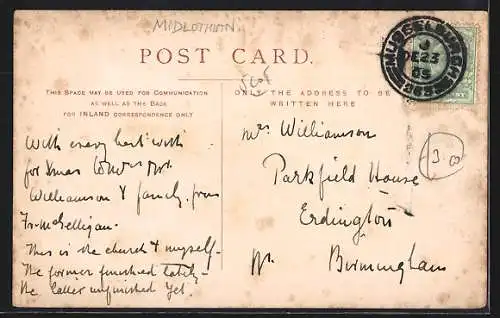 MIDLOTHIAN.
POST CARD.
THIS SPACE MAY BE USED FOR COMMUNICATION
AS WELL AS THE BACK
FOR INLAND CORRESPONDENCE ONLY
ONLY THE ADDRESS TO BE
WRITTEN HERE
MUSSELBURGH
DE 23
05
With every best wish
for Xmas to Mr & Mrs
Williamson & family. from
This is the church & myself-
The former finished lately-
the latter unfinished yet.
Mrs Williamson
Parkfield House
Erdington
Birmingham